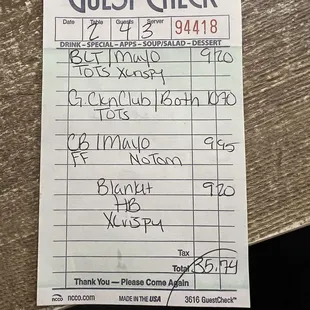 GUEST CHECK
Date Table Guests Server
2 4 3 94418
DRINK – SPECIAL – APPS – SOUP/SALAD – DESSERT
BLT / Mayo 9 20
TOTS XCrispy
G.CknClub / Both 10 70
TOTS
CB / Mayo 9 95
FF NoTom
Blankt 9 20
HB
XCrispy
Tax
Total 35.74
Thank You — Please Come Again
ncco ncco.com MADE IN THE USA 3616 GuestCheck™